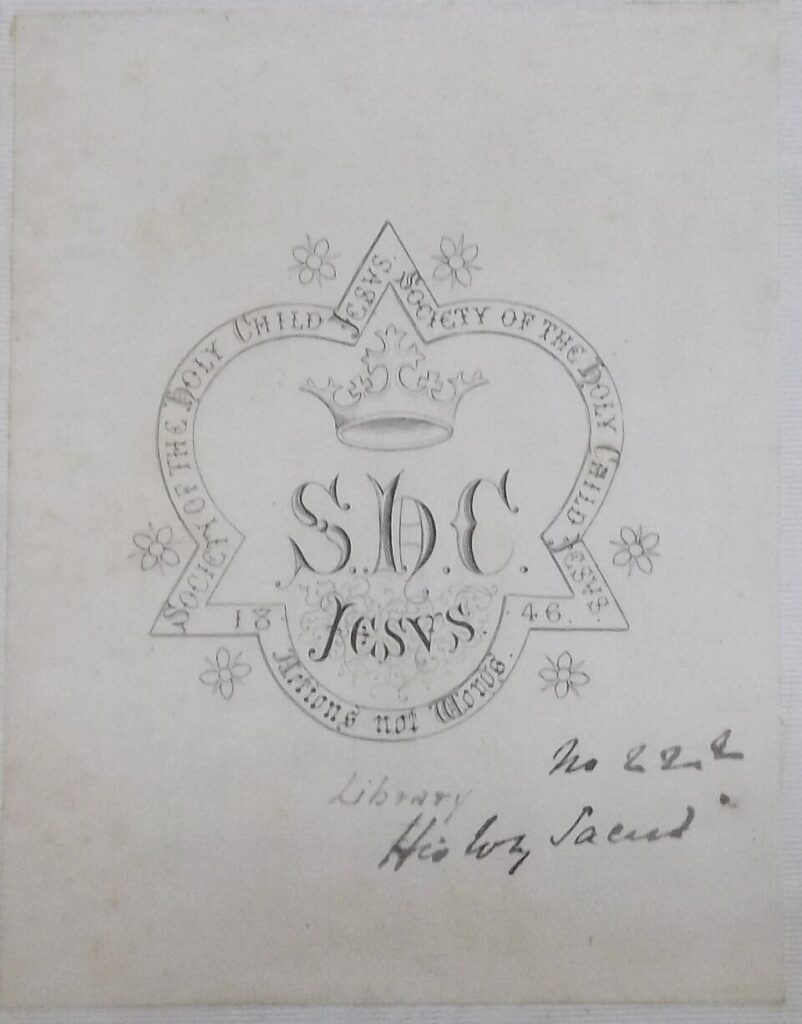 Society of the Holy Child Jesvs.
Society of the Holy Child Jesvs.
S.H.C.
Jesvs.
18 46.
Actions not Words.
No 222
Library
History Sacred